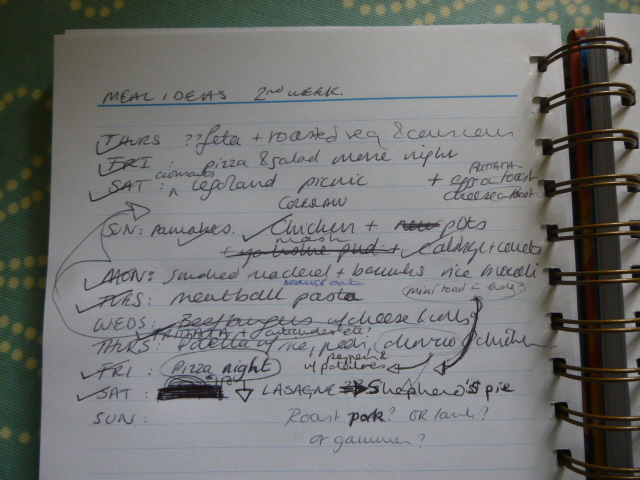 MEAL IDEAS 2ND WEEK.
THURS ?? feta + roasted veg & couscous
FRI : pizza & salad movie night
SAT : Legoland picnic + egg on toast
cheese on toast
COLESLAW
SUN: Pancakes. Chicken + new pots
mash
cabbage + carrots
MON: Smoked mackerel + rice broccoli
TUES: meatball pasta
mini toad in hole?
WEDS: Beefburgers cheese
THURS: Paella w/ rice, peas, chorizo chicken
FRI : Pizza night w/ potatoes
SAT : LASAGNE Shepherd's pie
SUN: Roast pork? OR lamb?
or gammon?